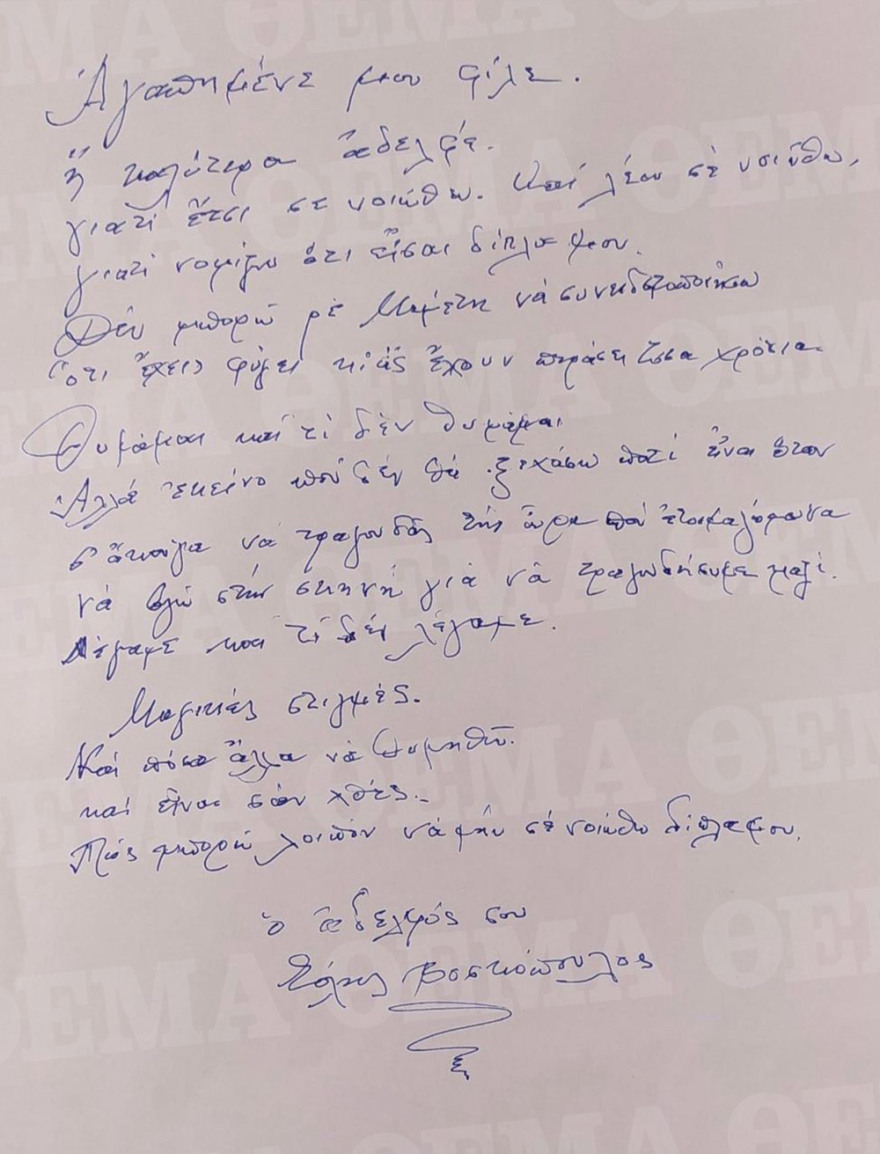 Ἀγαπημένε μου φίλε.
ἤ καλύτερα ἀδελφέ.
γιατί ἔτσι σέ νοιώθω. Καί λέω σέ νοιώθω,
γιατί νομίζω ὅτι εἶσαι δίπλα μου.
Δέν μπορῶ ρέ Μαμέτη νά συνειδητοποιήσω
ὅτι ἔχεις φύγει κι ἄς ἔχουν περάσει τόσα χρόνια.
Θυμᾶμαι καί τί δέν θυμᾶμαι
Ἀλλά ἐκεῖνο πού δέν θά ξεχάσω ποτέ εἶναι ὅταν
σ' ἄκουγα νά τραγουδᾶς τήν ὥρα πού ἐτοιμαζόμουνα
νά βγῶ στήν σκηνή γιά νά τραγουδήσουμε μαζί.
Λέγαμε καί τί δέν λέγαμε.
Μαγικές στιγμές.
Καί πόσα ἄλλα νά θυμηθῶ.
καί εἶναι σάν χθές.
Πῶς μπορῶ λοιπόν νά μήν σέ νοιώθω δίπλα μου.
ὁ ἀδελφός σου
Τόλης Βοσκόπουλος
ΘΕΜΑ ΘΕΜΑ ΘΕΜΑ